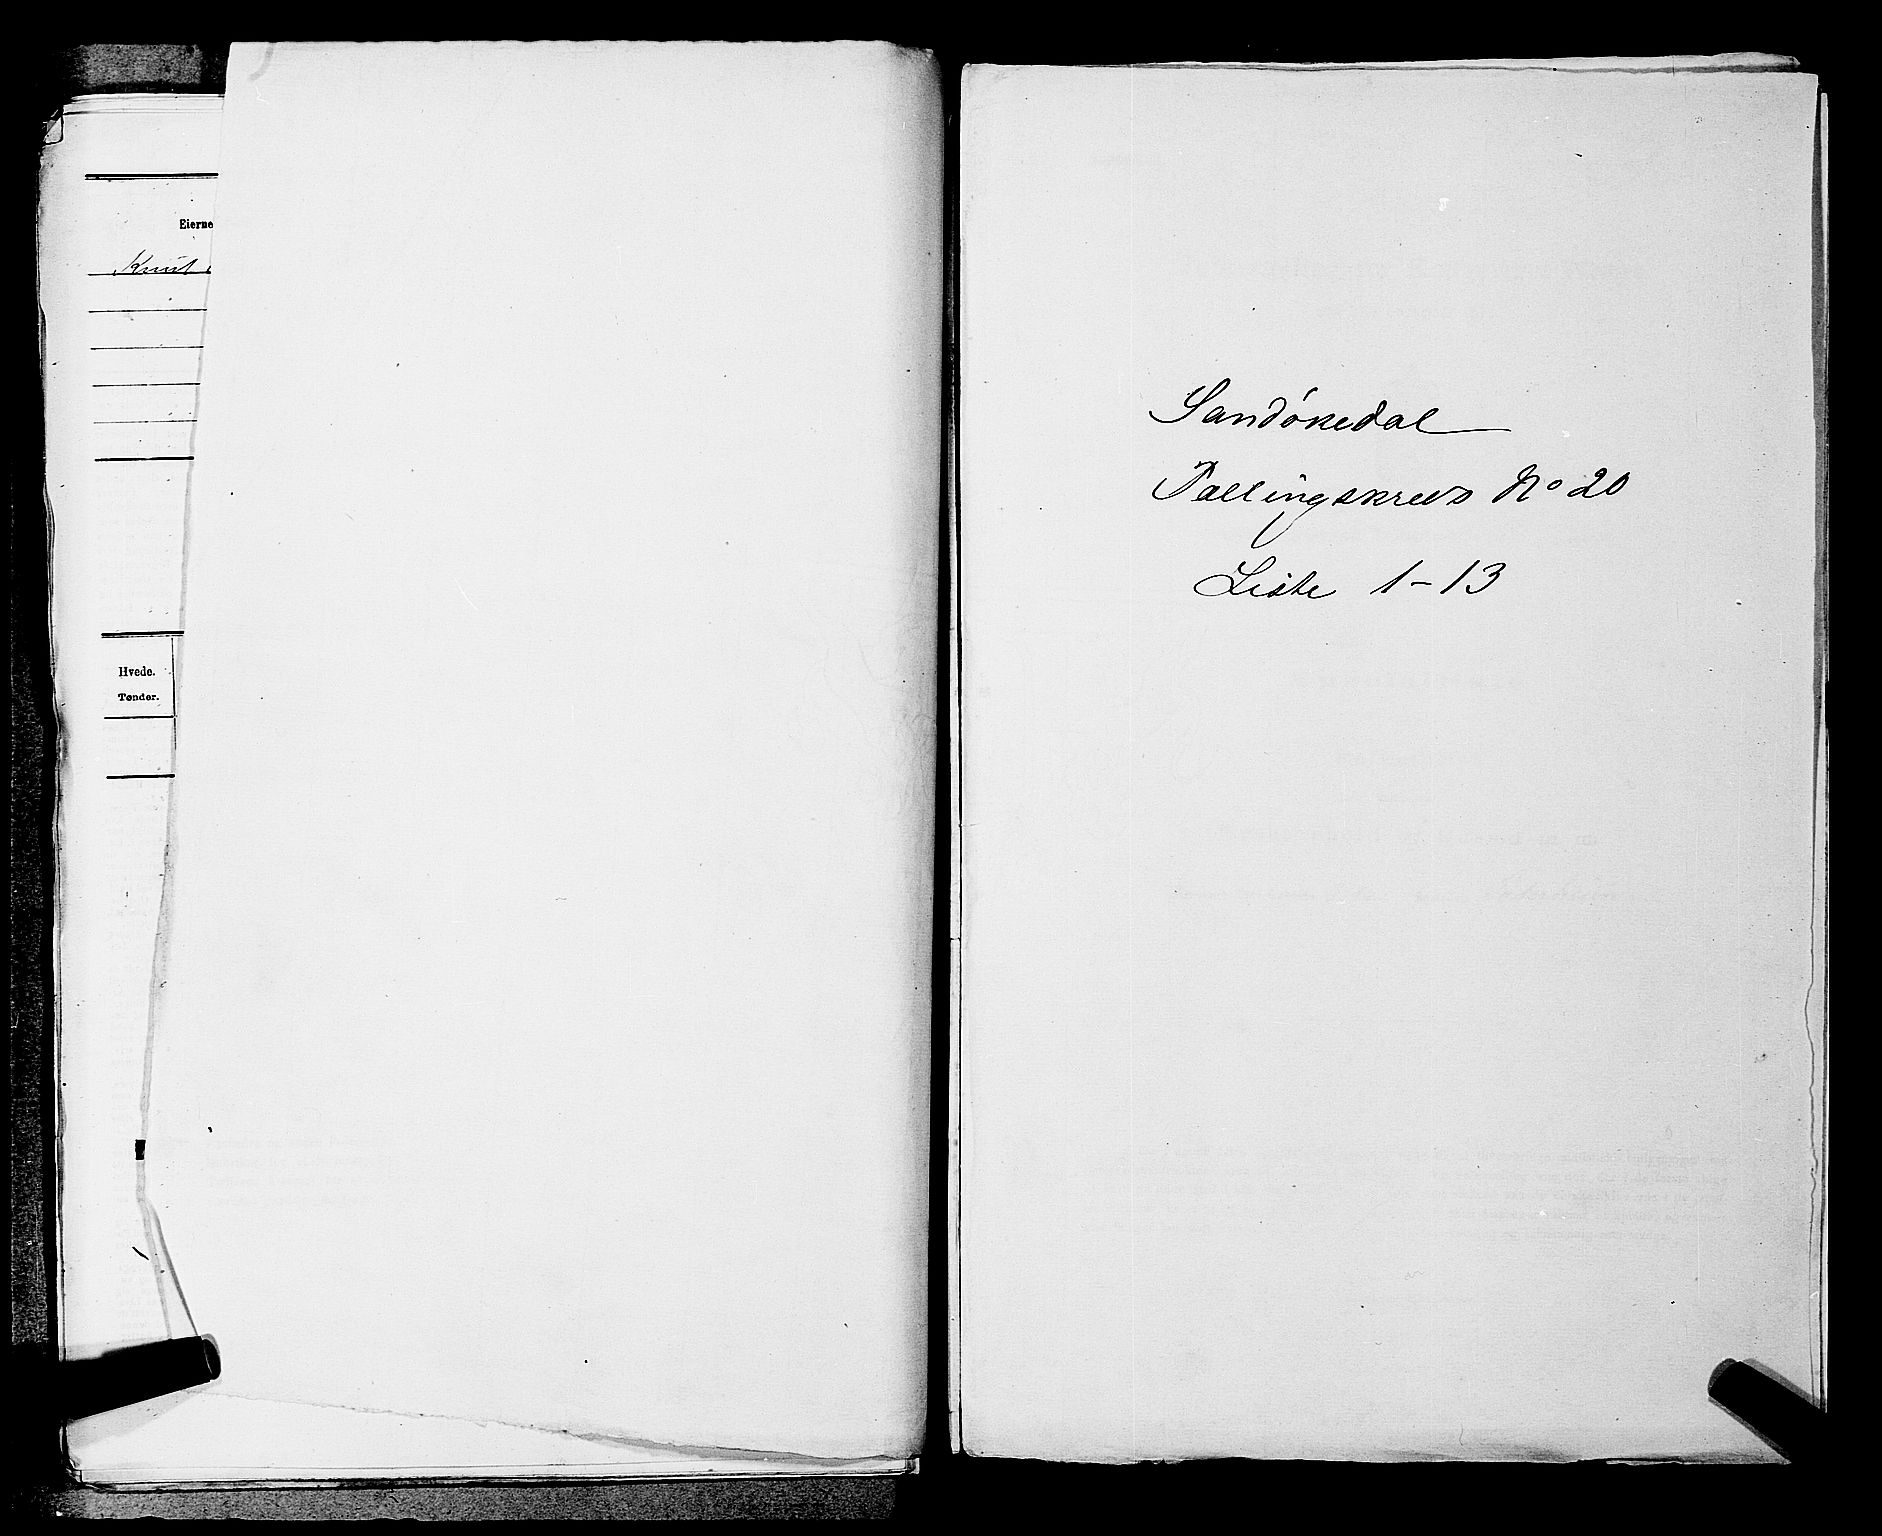 Eierne
Knut
Hvede.
Tønder.
Sandøkedal
Tællingskreds No 20
Liste 1-13